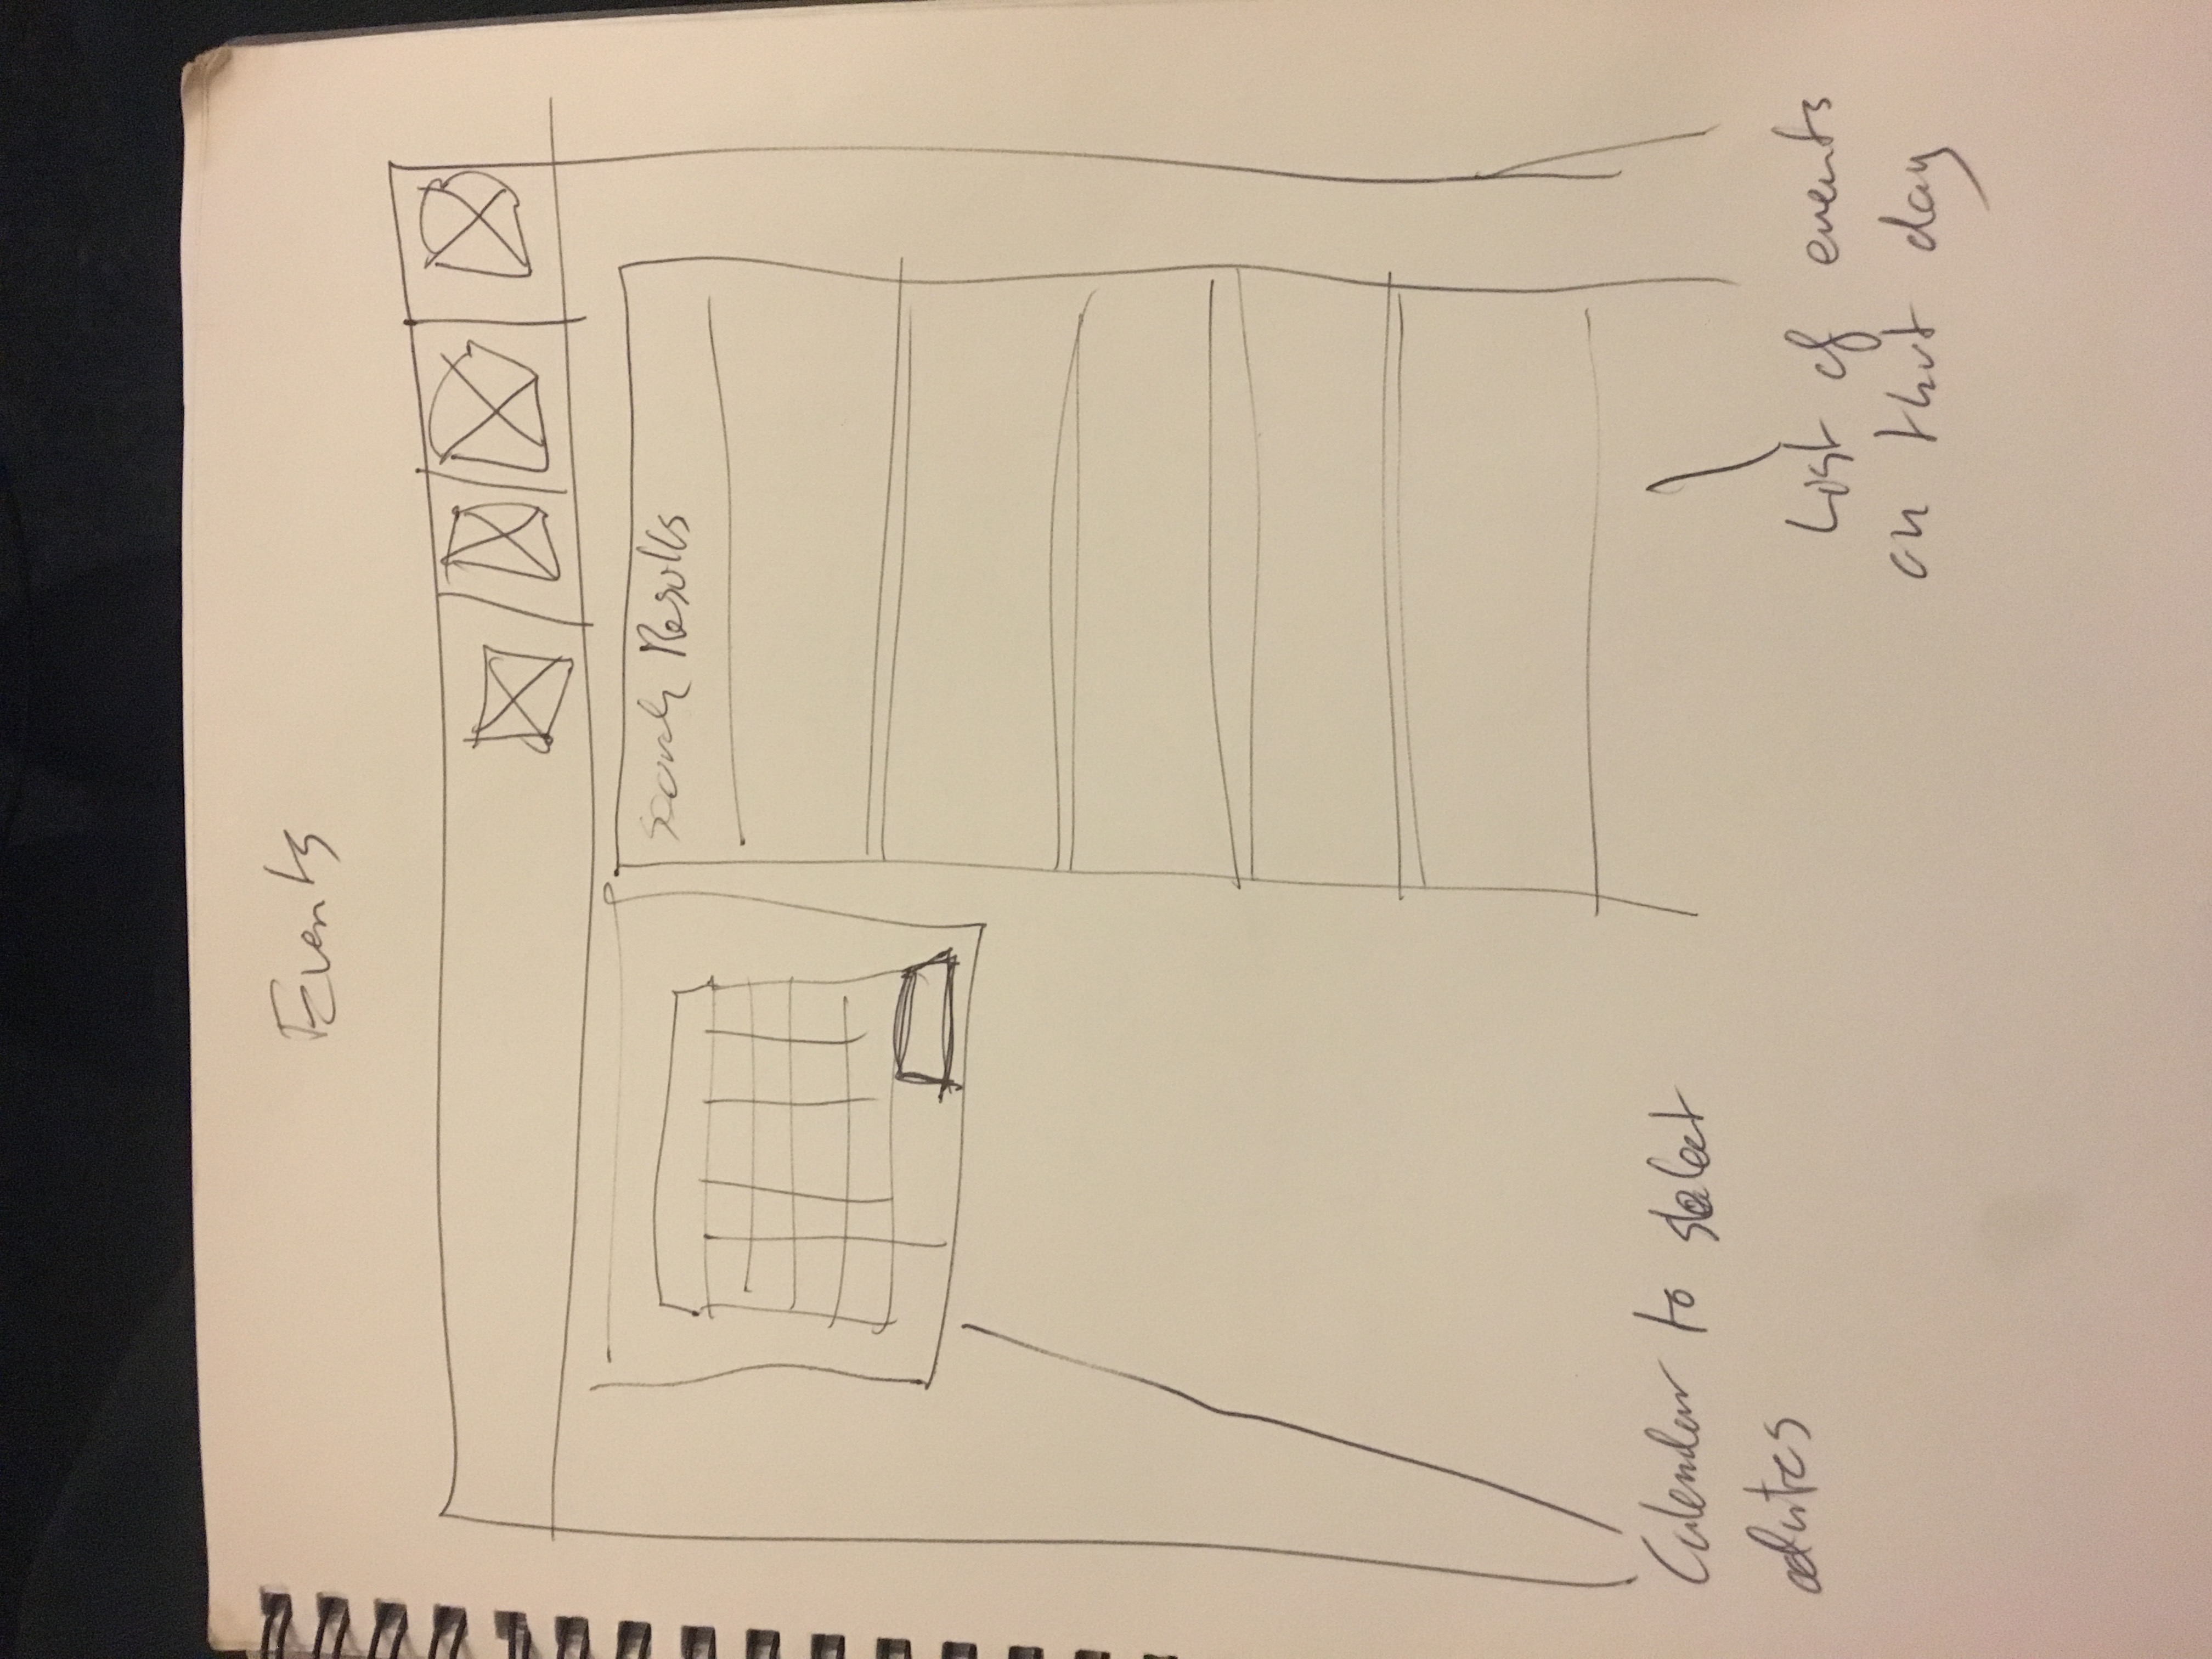 Events
Search Results
Calendar to select
dates
List of events
on that day